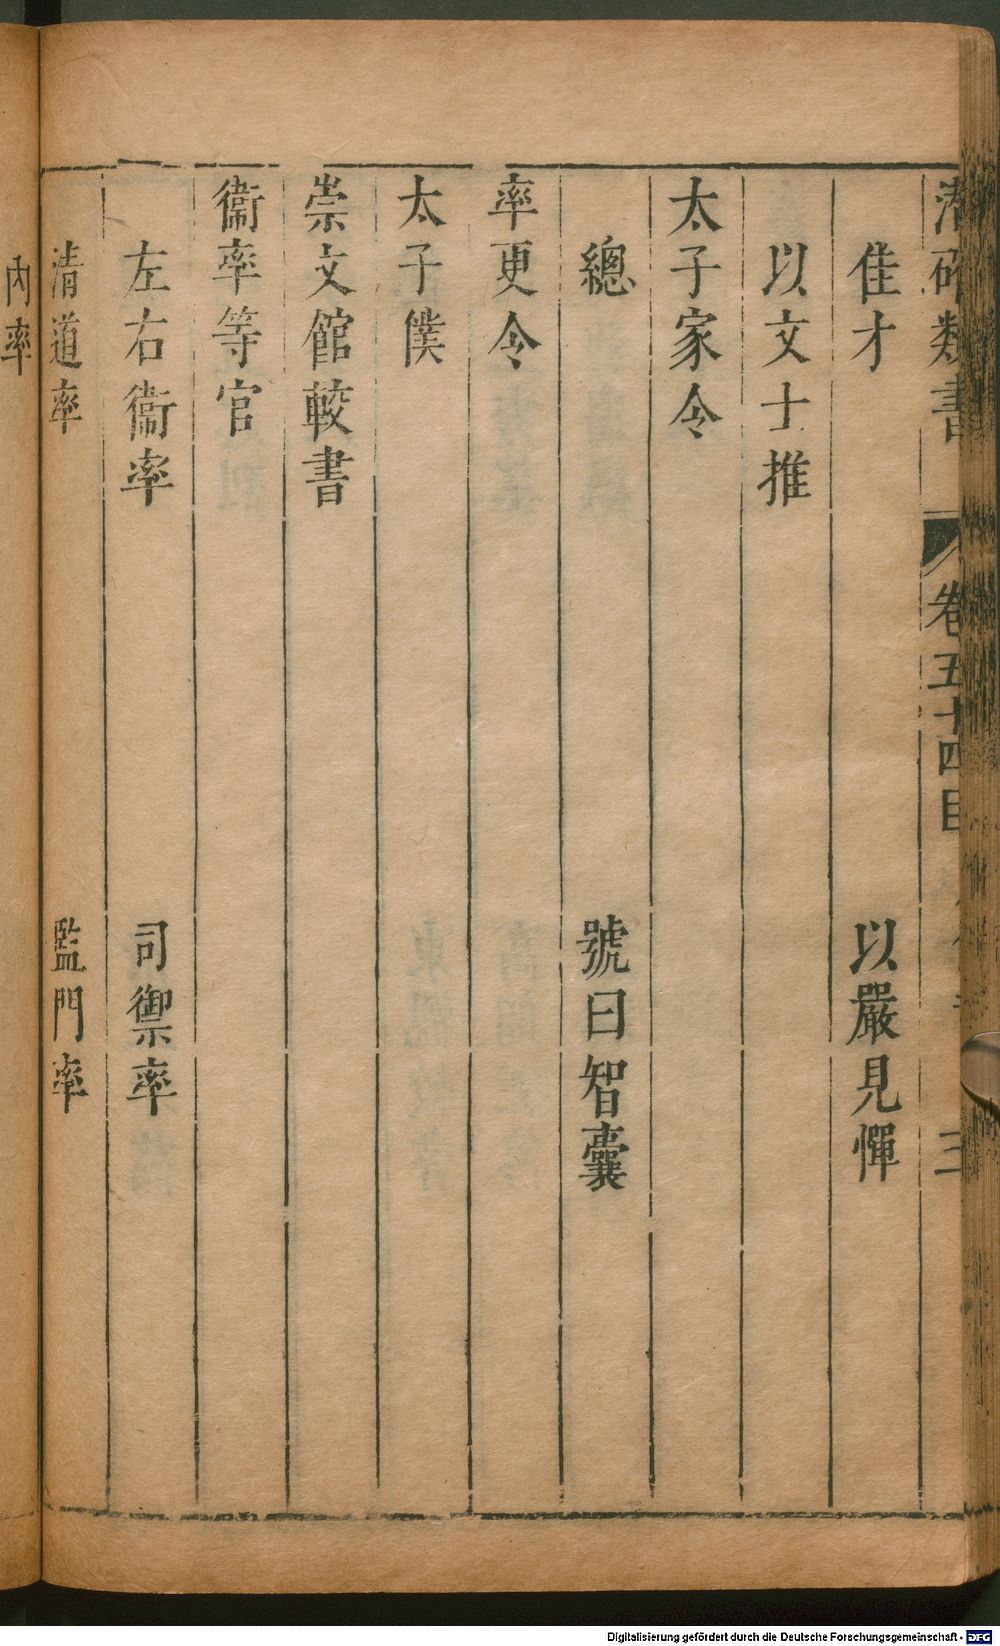 潛確類書 卷五十四目 三
佳才 以嚴見憚
以文士推
太子家令
總 號曰智囊
率更令
太子僕
崇文館較書
衞率等官
左右衞率 司禦率
清道率 監門率
內率
Digitalisierung gefördert durch die Deutsche Forschungsgemeinschaft - DFG